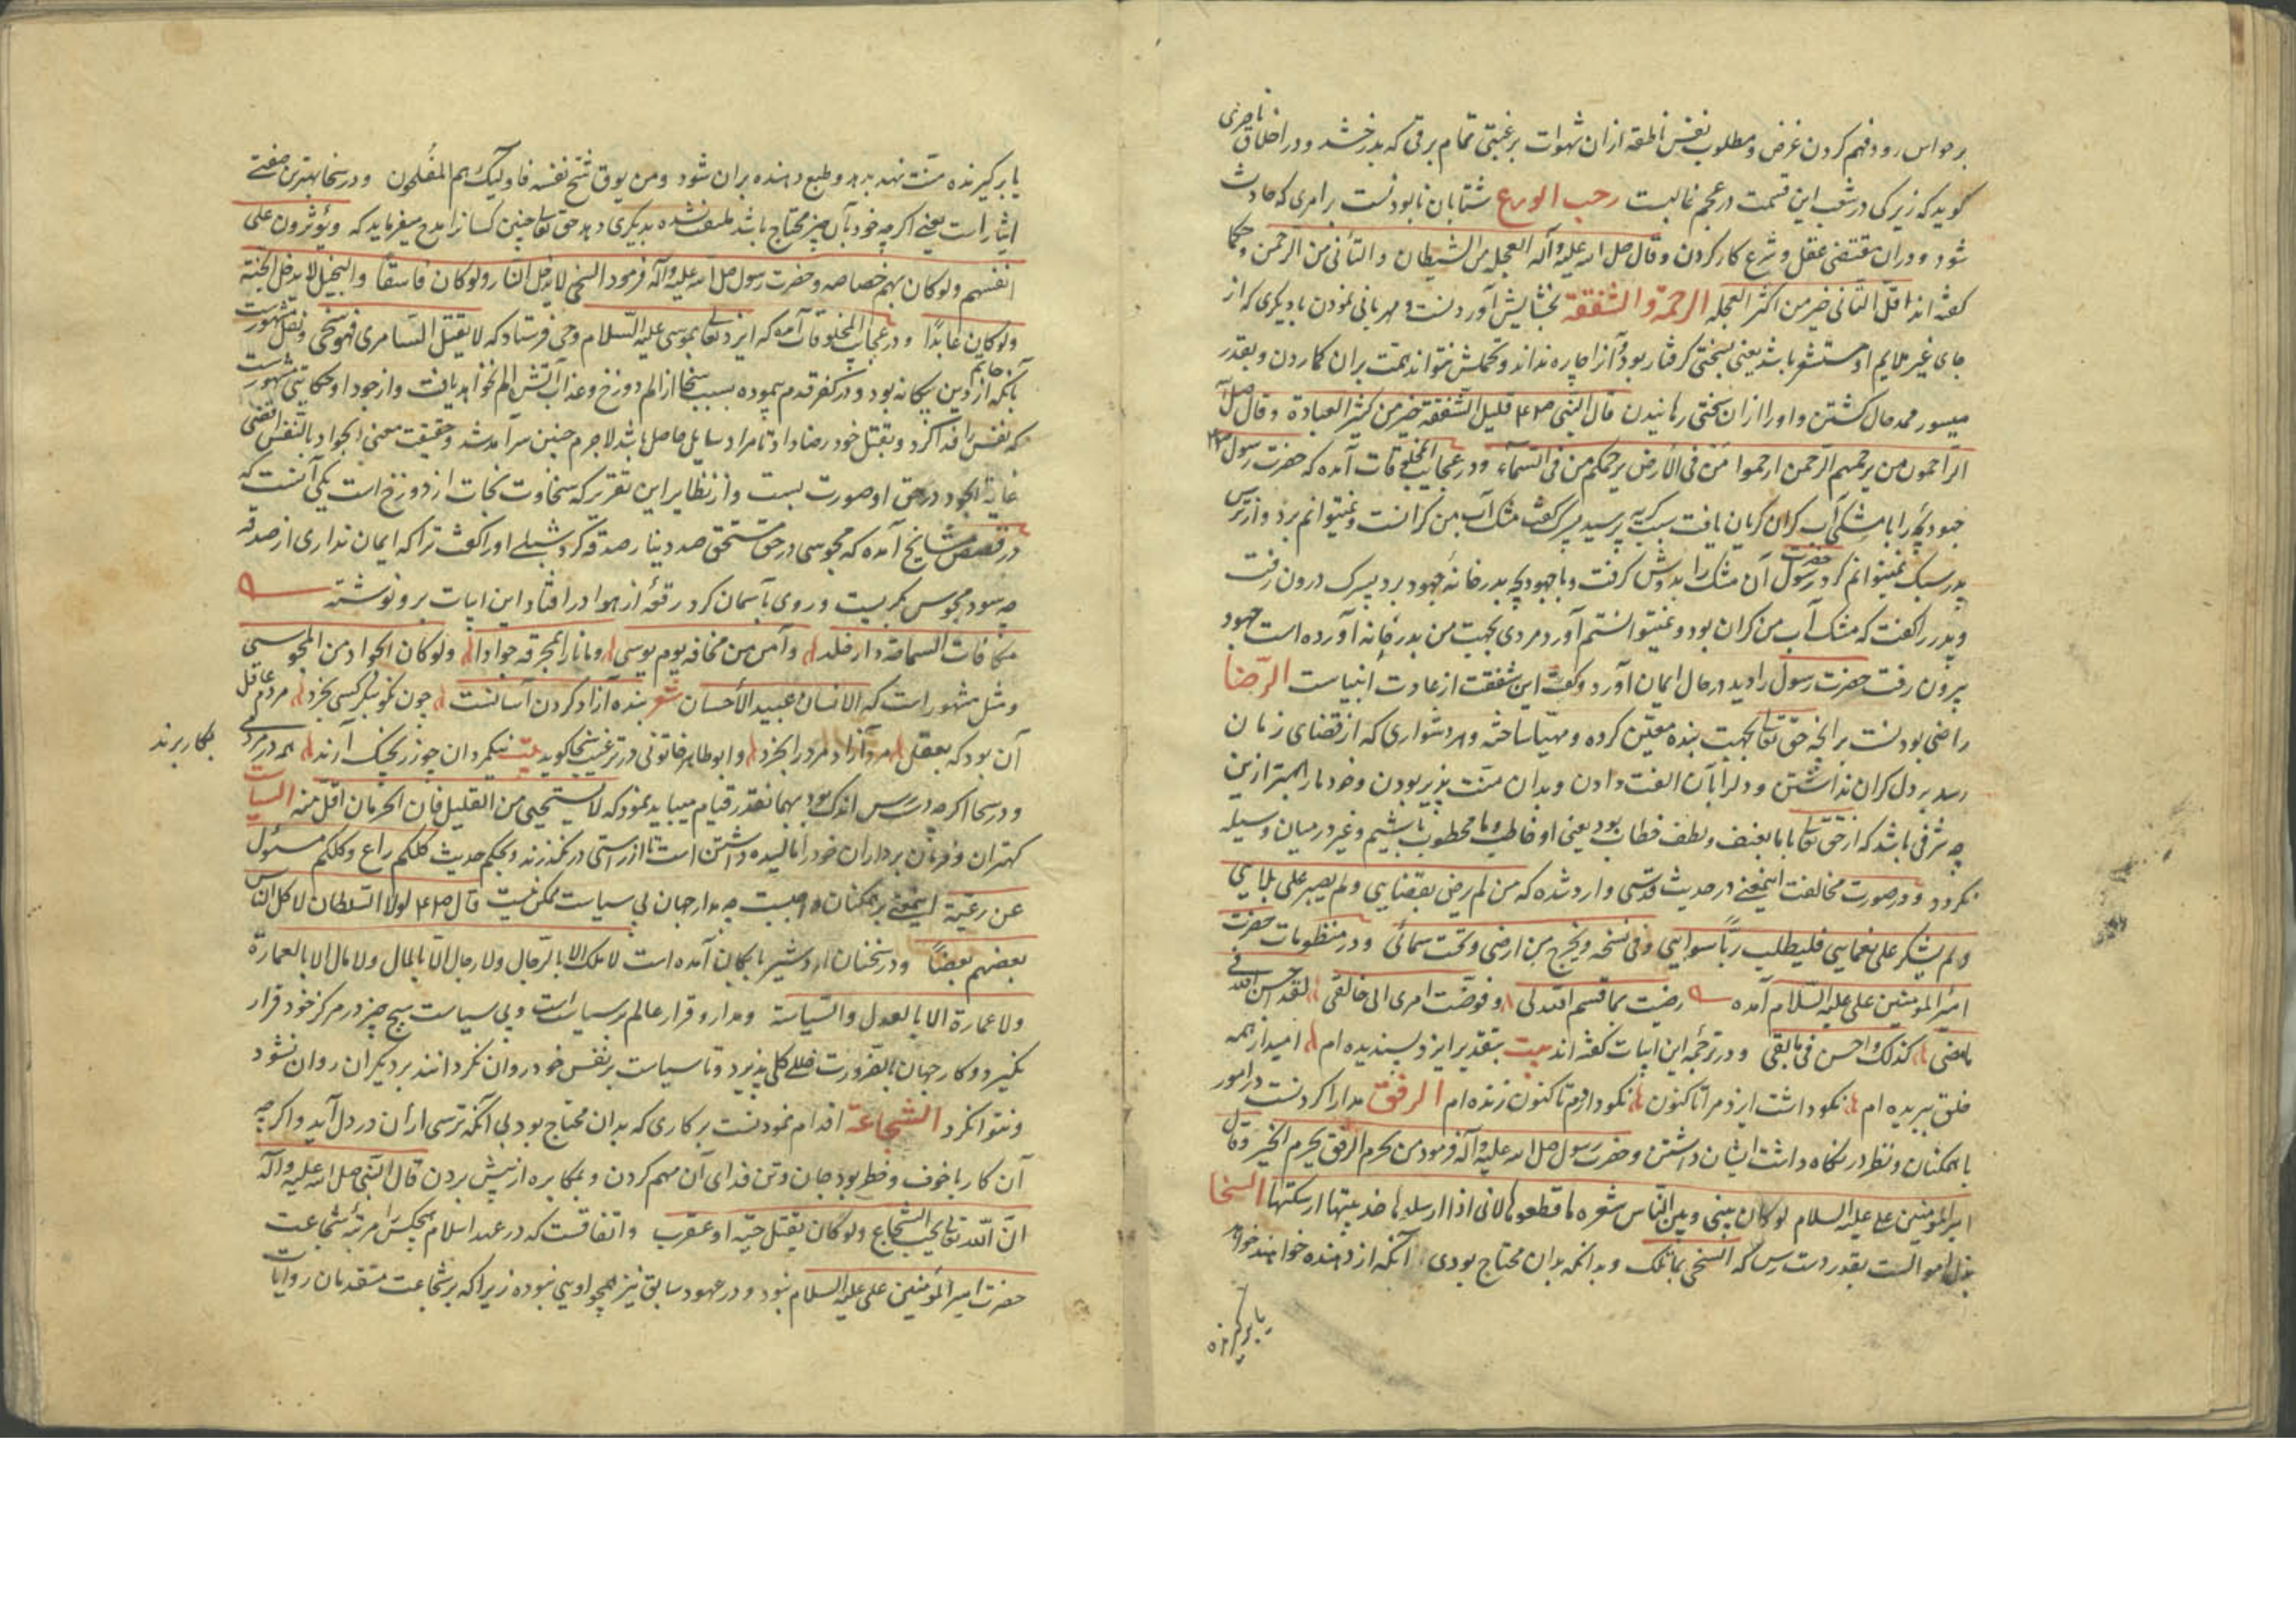 بر حواس رود فهم کردن غرض و مطلوب نفس ناطقه از ان شهوات برغبتی تمام برقی که بدرخشد و در اخلاق ناصری
کوید که زیرکی در شعب این قسمت در عجم غالبست رحب الورع شتابان نابودنست بر امری که حادث
شود و در ان مقتضی عقل و شرع کار کردن و قال صلی الله علیه و آله العجلة من الشیطان و التأنی من الرحمن و حکما
کفته اند اقل التانی خیر من اکثر العجله الرحمة و الشفقة بخشایش آوردنست و مهربانی نمودن با دیکری که از
جای غیر ملایم او مستشعر باشد یعنی بسختی کرفتار بود و آنرا چاره نداند و تحملش نتواند همت بران کماردن و بقدر
میسور ممد حال کشتن و او را ازان سختی رهانیدن قال النبی صلعم قلیل الشفقة خیر من کثیر العبادة و قال صلی
الراحمون من یرحمهم الرحمن ارحموا من فی الأرض یرحمکم من فی السماء و در عجایب المخلوقات آمده که حضرت رسول
جهودبچه را با مشکی آب کران کریان یافت سبب کریه پرسید پسر کفت مشک آب من کرانست و نمیتوانم برد و از ترس
پدر سبک نمیتوانم کرد حضرت رسول آن مشک را بدوش کرفت و با جهودبچه بدر خانهٔ جهود برد پسرک درون رفت
و پدر را کفت که مشک آب من کران بود و نمیتوانستم آورد مردی بجهت من بدر خانه آورده است جهود
بیرون رفت حضرت رسول را دید در حال ایمان آورد و کفت این شفقت از عادت انبیاست الرضا
راضی بودنست بر انچه حق تعا بجهت بنده معین کرده و مهیا ساخته و هر دشواری که از قضای زمان
رسد بر دل کران نداشتن و دل را بآن الفت دادن و بدان منت پذیر بودن و خود ما را بهتر ازین
چه شرفی باشد که از حق تعا با ما بعنف و لطف خطاب بود یعنی او خاطب و ما مخطوب باشیم و غیر در میان وسیله
نکردد و در صورت مخالفت اینمعنی در حدیث قدسی وارد شده که من لم یرض بقضایی و لم یصبر علی بلایی
و لم یشکر علی نعمایی فلیطلب ربا سوایی و فی نسخه و یخرج من ارضی و تحت سمائی و در منظومات حضرت
امیر المومنین علی علیه السلام آمده رضیت بما قسم الله لی و فوضت امری الی خالقی لقد احسن الله فی
ما مضی کذلک و احسن فی ما بقی و در ترجمه این ابیات کفته اند بیت بتقدیر ایزد پسندیده ام امید از همه
خلق ببریده ام نکو داشت ایزد مرا تا کنون نکو دارم تا کنون زنده ام الرفق مدارا کردنست در امور
با همکنان و نظر در نکاه داشت ایشان داشتن و حضرت رسول صلی الله علیه و آله فرمود من یحرم الرفق یحرم الخیر و قال
امیر المومنین علی علیه السلام لو کان بینی و بین الناس شعره ما قطعوها لانی اذا ارسلوها جذبتها السخا
بذل اموالست بقدر دست رس که السخی بما ملک و بدانچه بدان محتاج بودی آنکه از دهنده خواهند خواه
یا برکیرنده
یا برکیرنده منت نهد بدهد و طبع دهنده بران شود و من یوق شح نفسه فاولیک هم المفلحون و در سخا بهترین صفتی
ایثار است یعنی اکرچه خود بآن چیز محتاج باشد ملتفت نشده بدیکری دهد حق تعا چنین کسانرا مدح میفرماید که و یؤثرون علی
انفسهم و لو کان بهم خصاصه و حضرت رسول صلی الله علیه و آله فرمود السخی لا یدخل النار و لو کان فاسقا و البخیل لا یدخل الجنة
و لو کان عابدا و در عجایب المخلوقات آمده که ایزد تعالی بموسی علیه السلام وحی فرستاد که لا یقتل السامری فهو سخی و نقل مشهورست
بآنکه حاتم از دین بیکانه بود و در کفر قدم پیموده بسبب سخا از الم دوزخ و عذاب آتش الم نخواهد یافت و از جود او حکایتی مشهورست
که نفس را فدا کرد و بقتل خود رضا داد تا مراد سایل حاصل باشد لاجرم چنین سرآمد شد و حقیقت معنی الجواد بالنفس اقصی
غایة الجود در حق او صورت بست و از نظایر این تقریر که سخاوت نجات از دوزخ است یکی آنست که
در قصص مشایخ آمده که مجوسی در حق مستحق صد دینار صدقه کرد شبلی او را کفت ترا که ایمان نداری از صدقه
چه سود مجوس بکریست و روی بآسمان کرد رقعهٔ از هوا در افتاد این ابیات بر و نوشته
مکافات السماحة دار خلد و آمن من مخافه یوم بوسی و ما نار بمحرقه جوادا و لو کان الجواد من المجوسی
و مثل مشهور است که الانسان عبید الأحسان شعر بنده آزاد کردن آسانست چون نکو بنکر کسی بخرد مردم عاقل
آن بود که بعقل مرد آزاد مرد را بخرد و ابو طاهر خاتونی در ترغیب سخا کوید بیت نیکمردان چو زر بچنک آرند همه در مردمی
بکار برند
و در سخا اکرچه دسترس اندک بود بهمانقدر قیام میباید نمود که لا یستحیی من القلیل فان الحرمان اقل منه السیاسة
کهتران و فرمان برداران خود را مالیده داشتن است تا از راستی در نکذرند و بحکم حدیث کلکم راع و کلکم مسئول
عن رعیته اینمعنی بر همکنان واجبست چه مدار جهان بی سیاست ممکن نیست قال صلعم لو لا السلطان لاکل الناس
بعضهم بعضا و در سخنان اردشیر بابکان آمده است لا ملک الا بالرجال و لا رجال الا بالمال و لا مال الا بالعمارة
و لا عمارة الا بالعدل و السیاسة و مدار و قرار عالم بر سیاست است و بی سیاست هیچ چیز در مرکز خود قرار
نکیرد و کار جهان بالضرورت خلل کلی پذیرد و تا سیاست بر نفس خود روان نکردانند بر دیکران روان نشود
و نتوان کرد الشجاعة اقدام نمودنست بر کاری که بدان محتاج بود بی آنکه ترسی از ان در دل آید و اکرچه
آن کار با خوف و خطر بود جان و تن فدای آن مهم کردن و بمکابره از پیش بردن قال النبی صلی الله علیه و آله
ان الله تعا یحب الشجاع و لو کان بقتل حیة او عقرب و اتفاقست که در عهد اسلام هیچکس را مرتبهٔ شجاعت
حضرت امیر المؤمنین علی علیه السلام نبود و در عهود سابق نیز همچو اویی نبوده زیرا که بر شجاعت متقدمان روایات